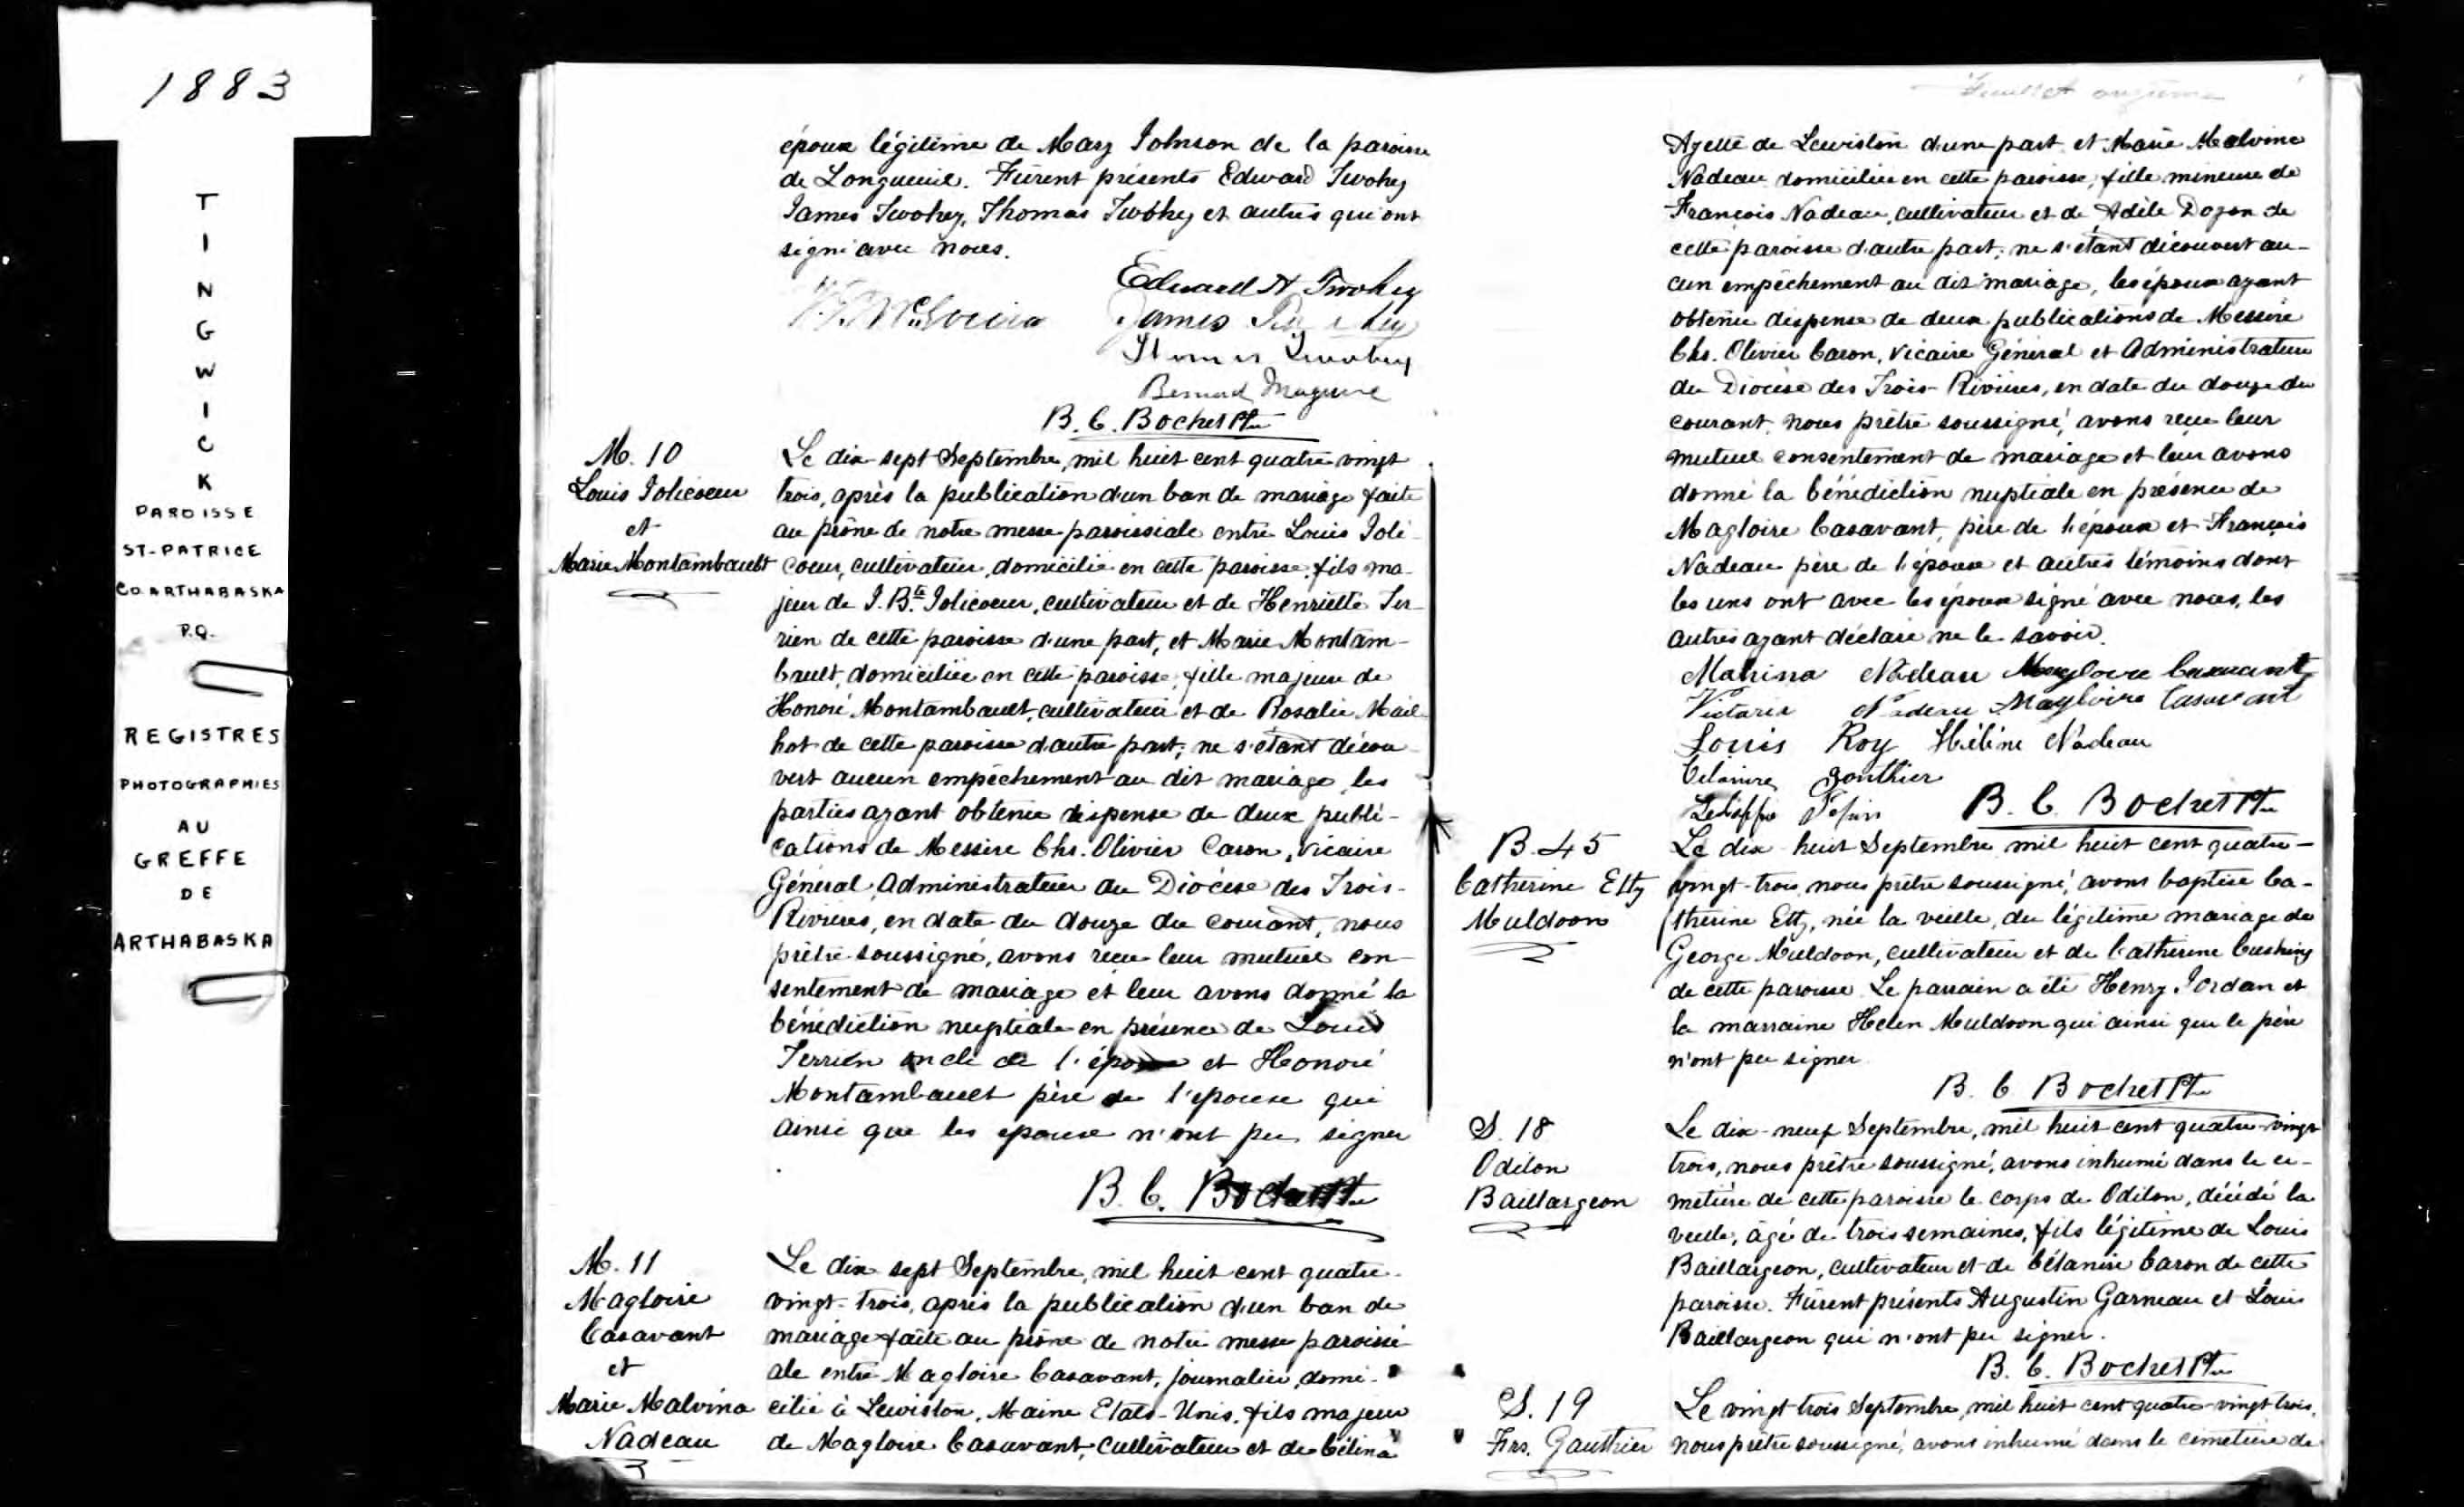 1883
T
I
N
G
W
I
C
K
PAROISSE
ST-PATRICE
CO. ARTHABASKA
P.Q.
REGISTRES
PHOTOGRAPHIES
AU
GREFFE
DE
ARTHABASKA
époux légitime de Mary Johnson de la paroisse
de Longueuil. Fûrent présents Edward Twohey
James Twohey, Thomas Twohey et autres qui ont
signé avec nous.
Edward A Twohey
James
Bernard Maguire
B. C. Bochet Ptre
M. 10
Louis Jolicoeur
et
Marie Montambault
Le dix-sept Septembre, mil huit cent quatre vingt
trois, après la publication d'un ban de mariage faite
au prône de notre messe paroissiale entre Louis Joli-
coeur, cultivateur, domicilié en cette paroisse, fils ma-
jeur de J. Bte Jolicoeur, cultivateur et de Henriette Ter-
rien de cette paroisse d'une part, et Marie Montam-
bault, domiciliée en cette paroisse, fille majeure de
Honoré Montambault, cultivateur et de Rosalie Mail-
hot de cette paroisse d'autre part; ne s'étant décou-
vert aucun empêchement au dit mariage, les
parties ayant obtenu dispense de deux publi-
cations de Messire Chs. Olivier Caron, Vicaire
Général, Administrateur du Diocèse des Trois-
Rivières, en date du douze du courant, nous
prêtre soussigné, avons reçu leur mutuel con-
sentement de mariage et leur avons donné la
bénédiction nuptiale en présence de Louis
Terrien oncle de l'époux et Honoré
Montambault père de l'épouse qui
ainsi que les époux n'ont pu signer
B. C. Bochet Ptre
M. 11
Magloire
Casavant
et
Marie Malvina
Nadeau
Le dix sept Septembre, mil huit cent quatre-
vingt-trois, après la publication d'un ban de
mariage faite au prône de notre messe paroissi-
ale entre Magloire Casavant, journalier, domi-
cilié à Lewiston, Maine Etats-Unis, fils majeur
de Magloire Casavant, cultivateur et de Célina
Feuillet onzième
Ayette de Lewiston d'une part et Marie Malvina
Nadeau domiciliée en cette paroisse, fille mineure de
François Nadeau, cultivateur et de Adèle Dozon de
cette paroisse d'autre part; ne s'étant découvert au-
cun empêchement au dit mariage, les époux ayant
obtenu dispense de deux publications de Messire
Chs. Olivier Caron, Vicaire Général et Administrateur
du Diocèse des Trois-Rivières, en date du douze du
courant, nous prêtre soussigné, avons reçu leur
mutuel consentement de mariage et leur avons
donné la bénédiction nuptiale en présence de
Magloire Casavant, père de l'époux et François
Nadeau père de l'épouse et autres témoins dont
les uns ont avec les époux signé avec nous, les
autres ayant déclaré ne le savoir.
Malvina Nadeau Magloire Casavant
Victoria Nadeau Magloire Casavant
Louis Roy Hélène Nadeau
Gonthier
Pepin B. C. Bochet Ptre
B. 45
Catherine Etty
Muldoon
Le dix-huit Septembre mil huit cent quatre-
vingt-trois, nous prêtre soussigné, avons baptisé Ca-
therine Etty, née la veille, du légitime mariage de
George Muldoon, cultivateur et de Catherine Cushing
de cette paroisse. Le parrain a été Henry Jordan et
la marraine Helen Muldoon qui ainsi que le père
n'ont pu signer
B. C Bochet Ptre
S. 18
Odilon
Baillargeon
Le dix-neuf Septembre, mil huit cent quatre-vingt
trois, nous prêtre soussigné, avons inhumé dans le ci-
metière de cette paroisse le corps de Odilon, décédé la
veille, âgé de trois semaines, fils légitime de Louis
Baillargeon, cultivateur et de Célanire Caron de cette
paroisse. Fûrent présents Augustin Garneau et Louis
Baillargeon qui n'ont pu signer.
B. C. Bochet Ptre
S. 19
Frs. Gauthier
Le vingt trois Septembre, mil huit cent quatre-vingt trois,
nous prêtre soussigné, avons inhumé dans le cimetière de